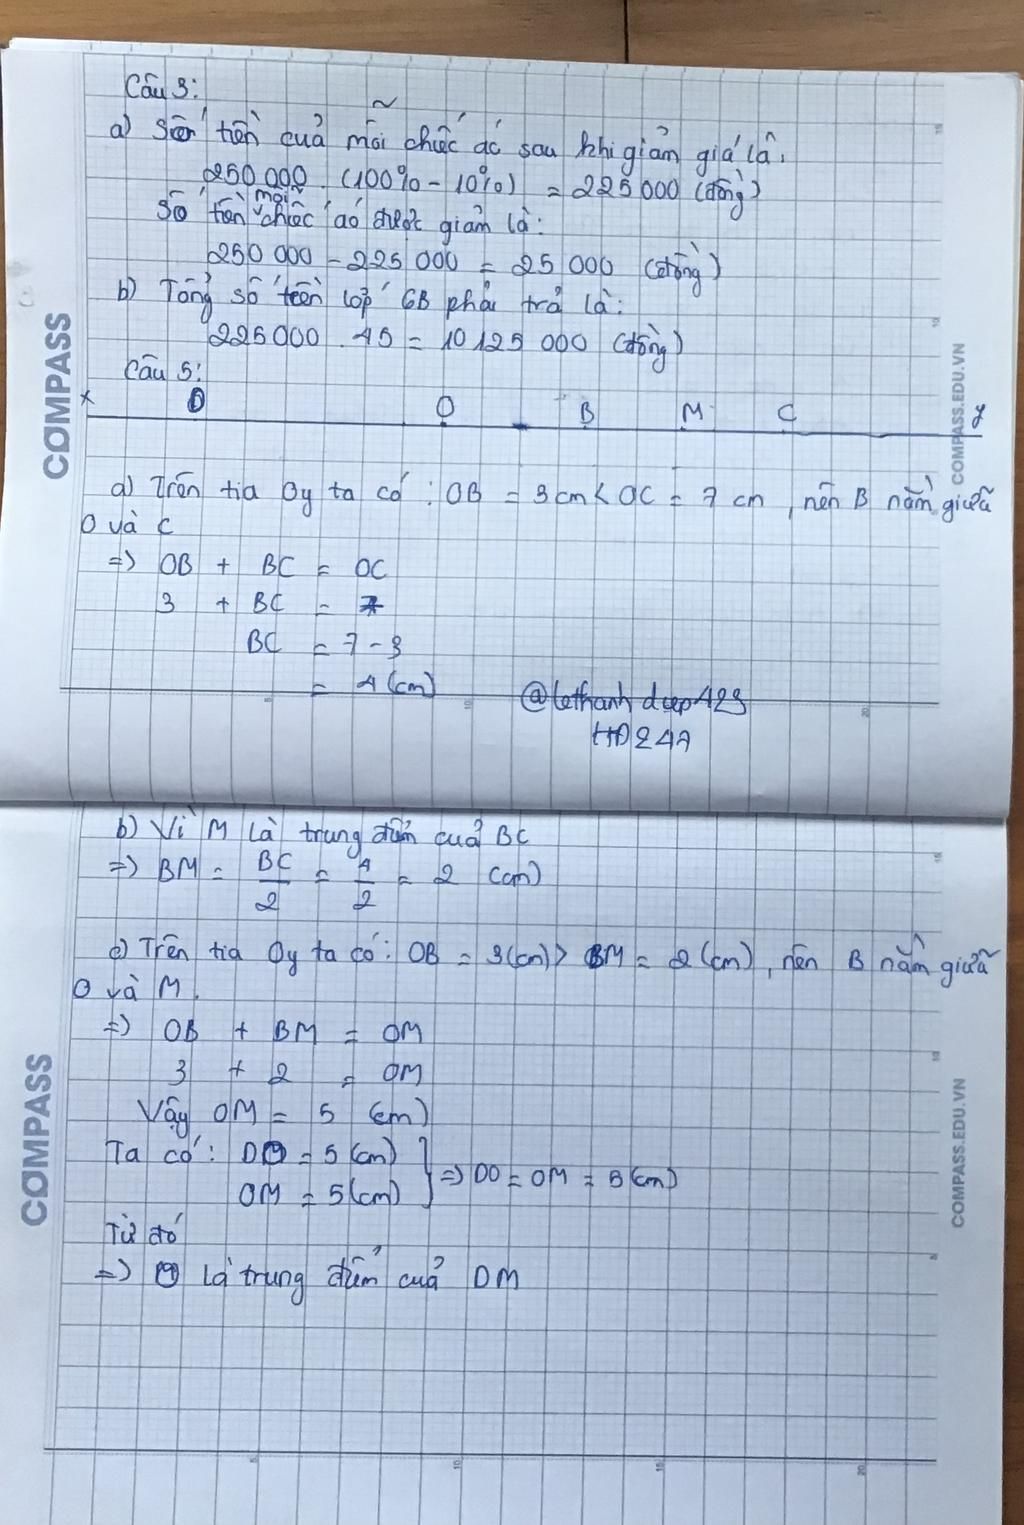 Câu 3:
a) Số tiền của mỗi chiếc áo sau khi giảm giá là:
250 000 . (100% - 10%) = 225 000 (đồng)
Số tiền mỗi chiếc áo được giảm là:
250 000 - 225 000 = 25 000 (đồng)
b) Tổng số tiền lớp 6B phải trả là:
225 000 . 45 = 10 125 000 (đồng)
Câu 5:
x D O B M C y
a) Trên tia Oy ta có : OB = 3 cm < OC = 7 cm , nên B nằm giữa
O và C
=> OB + BC = OC
3 + BC = 7
BC = 7 - 3
= 4 (cm)
@lethanh diep423
HD247
b) Vì M là trung điểm của BC
=> BM = BC/2 = 4/2 = 2 (cm)
c) Trên tia Oy ta có : OB = 3 (cm) > BM = 2 (cm) , nên B nằm giữa
O và M.
=> OB + BM = OM
3 + 2 = OM
Vậy OM = 5 (cm)
Ta có : DO = 5 (cm)
OM = 5 (cm) } => DO = OM = 5 (cm)
Từ đó
=> O là trung điểm của DM
COMPASS
COMPASS.EDU.VN
COMPASS
COMPASS.EDU.VN